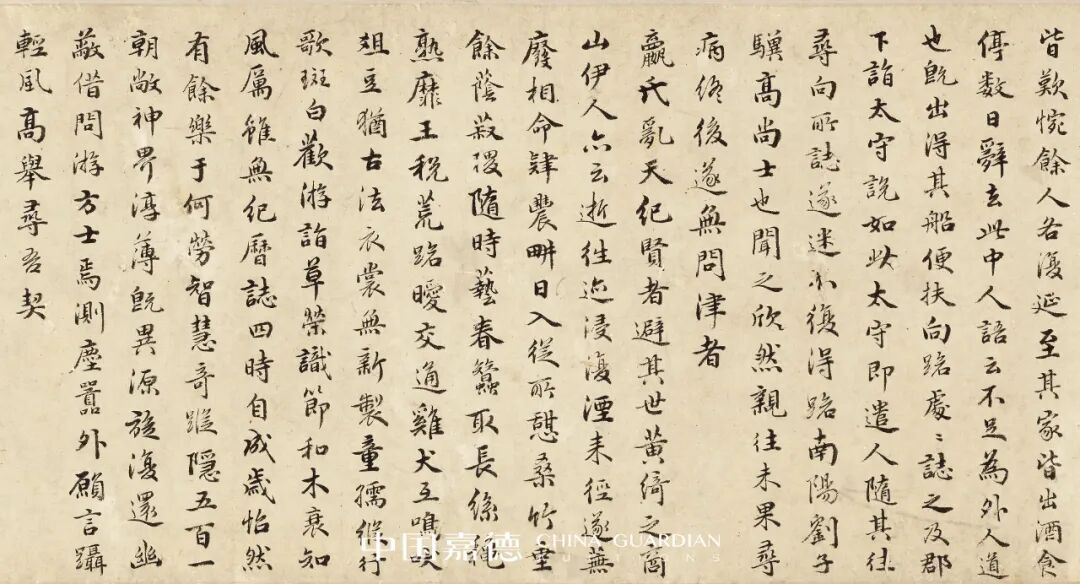 皆歎惋餘人各復延至其家皆出酒食
停數日辭去此中人語云不足為外人道
也既出得其船便扶向路處〻誌之及郡
下詣太守說如此太守即遣人隨其往
尋向所誌遂迷不復得路南陽劉子
驥高尚士也聞之欣然親往未果尋
病終後遂無問津者
嬴氏亂天紀賢者避其世黃綺之商
山伊人亦云逝往迹浸復湮来徑遂蕪
廢相命肆農畊日入從所憩桑竹垂
餘蔭菽稷隨時藝春蠶取長絲秋
熟靡王稅荒路曖交通雞犬互鳴吠
俎豆猶古法衣裳無新製童孺縱行
歌斑白歡游詣草榮識節和木衰知
風厲雖無紀曆誌四時自成歲怡然
有餘樂于何勞智慧奇蹤隱五百一
朝敞神界淳薄既異源旋復還幽
蔽借問游方士焉測塵囂外願言躡
輕風高舉尋吾契
中国嘉德 CHINA GUARDIAN
AUCTIONS